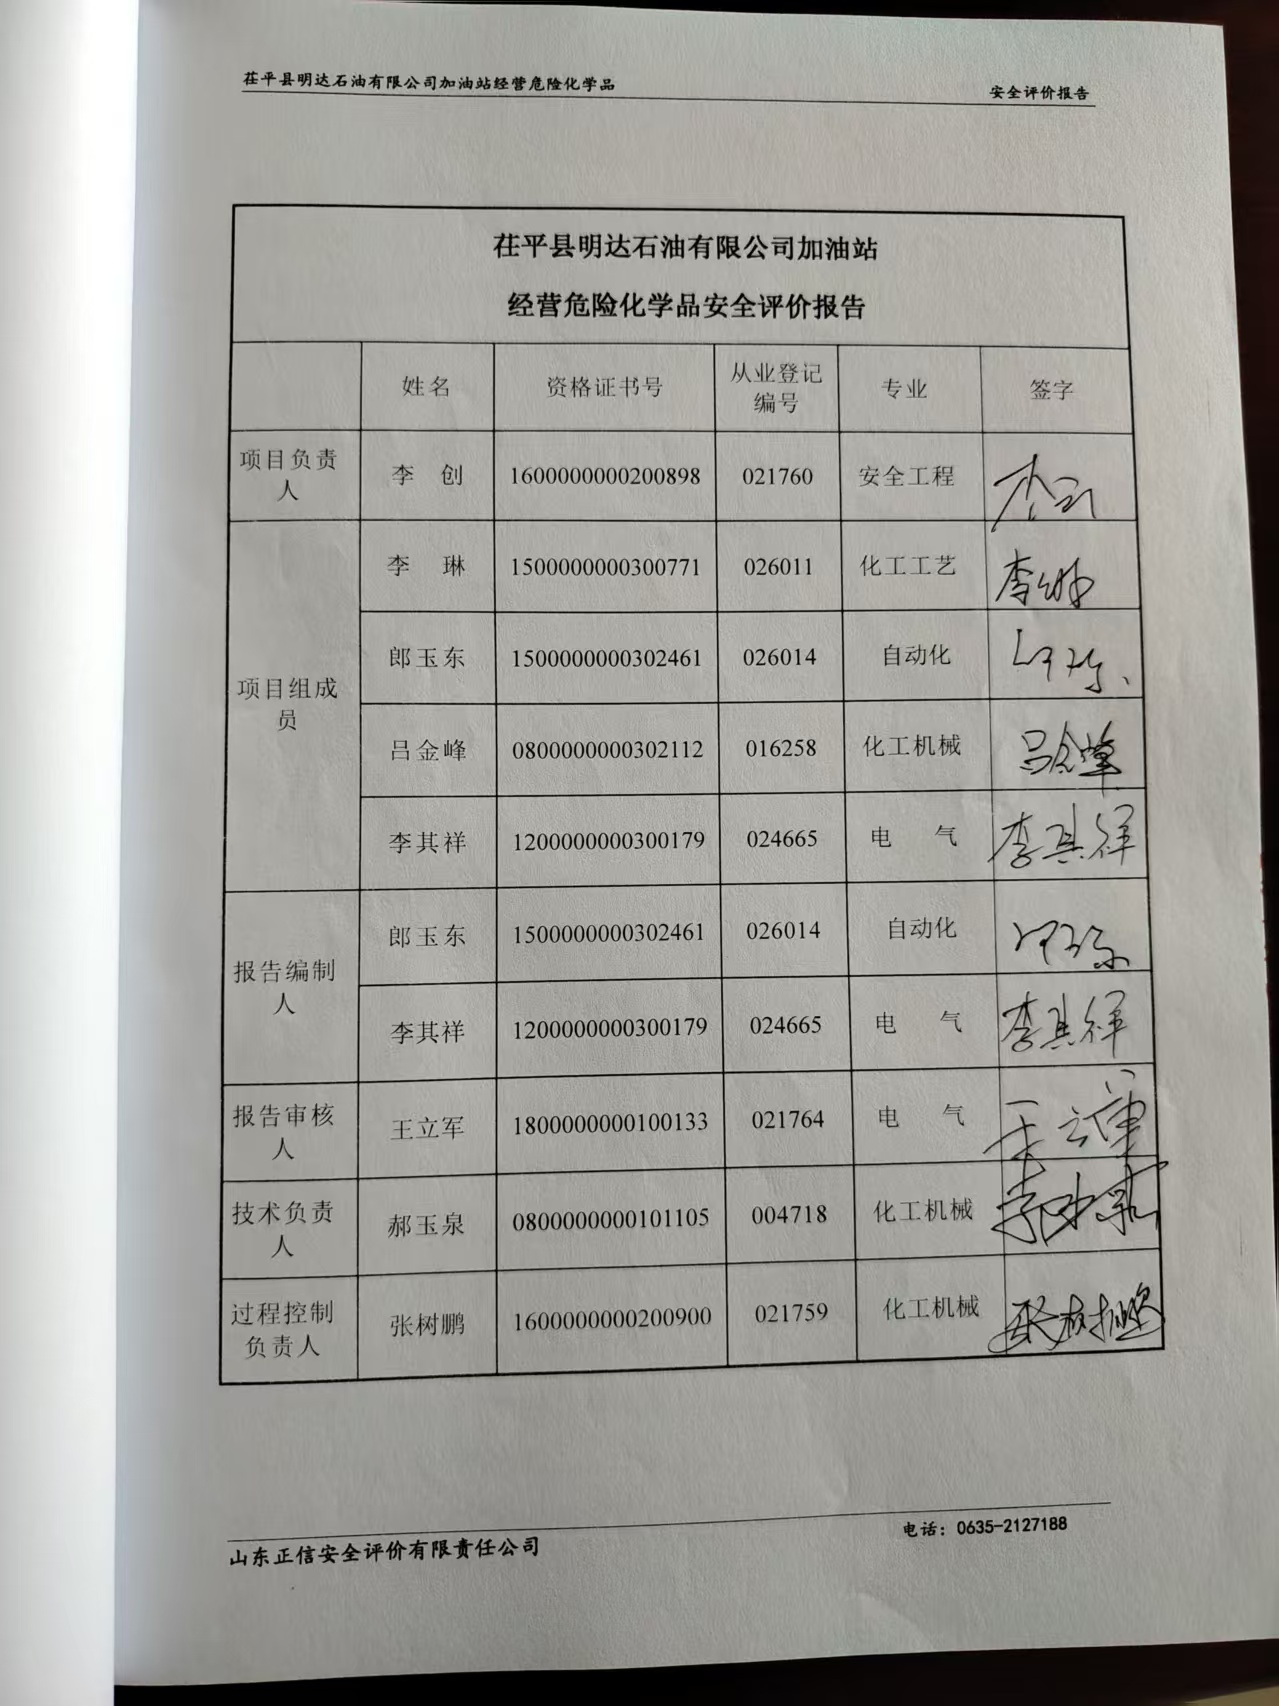 茌平县明达石油有限公司加油站经营危险化学品 安全评价报告
茌平县明达石油有限公司加油站
经营危险化学品安全评价报告
姓名 资格证书号 从业登记编号 专业 签字
项目负责人 李 创 1600000000200898 021760 安全工程
项目组成员 李 琳 1500000000300771 026011 化工工艺 李琳
郎玉东 1500000000302461 026014 自动化
吕金峰 0800000000302112 016258 化工机械 吕金峰
李其祥 1200000000300179 024665 电 气 李其祥
报告编制人 郎玉东 1500000000302461 026014 自动化
李其祥 1200000000300179 024665 电 气 李其祥
报告审核人 王立军 1800000000100133 021764 电 气 王立军
技术负责人 郝玉泉 0800000000101105 004718 化工机械
过程控制负责人 张树鹏 1600000000200900 021759 化工机械 张树鹏
山东正信安全评价有限责任公司 电话：0635-2127188